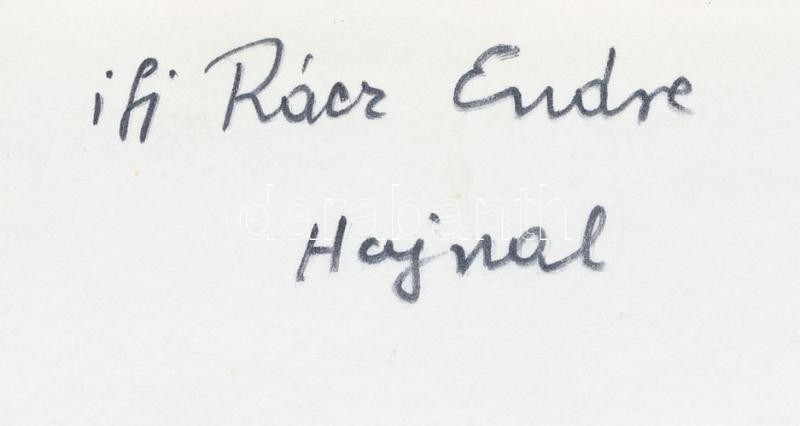 ifj Rácz Endre
Hajnal
darabanth